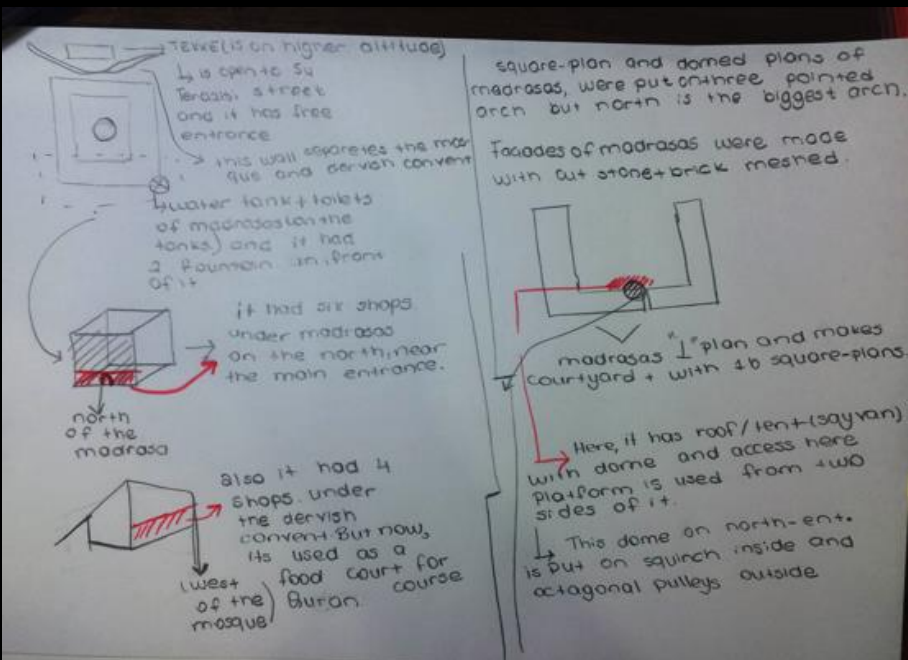 TEKKE(is on higher altitude)
↳ is open to Su
Terasisi street
and it has free
entrance
→ this wall separetes the mos
que and dervish convent
↳ water tank + toilets
of madrasas (on the
tanks) and it had
2 fountain in front
of it
it had six shops
under madrasas
on the north, near
the main entrance.
north
of the
madrasa
also it had 4
shops under
the dervish
convent. But now,
its used as a
food court for
course
(west
of the
mosque)
square-plan and domed plans of
madrasas, were put on three pointed
arch but north is the biggest arch.
Facades of madrasas were made
with cut stone + brick meshed.
madrasas "⊥" plan and makes
courtyard + with 16 square-plans
→ Here, it has roof/tent (sayvan)
with dome and access here
platform is used from two
sides of it.
↳ This dome on north-ent.
is put on squinch inside and
octagonal pulleys outside